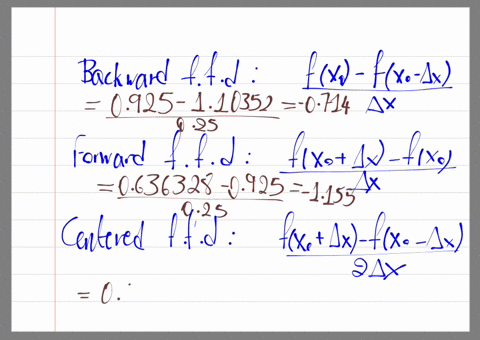 Backward f.f.d : f(x₀) - f(x₀ - Δx) / Δx
= 0.925 - 1.10352 / 0.25 = -0.714
Forward f.f.d : f(x₀ + Δx) - f(x₀) / Δx
= 0.636328 - 0.925 / 0.25 = -1.155
Centered f.f.d : f(x₀ + Δx) - f(x₀ - Δx) / 2Δx
= 0.